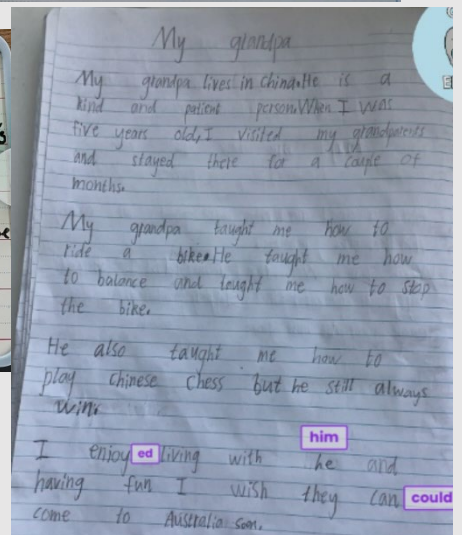 My grandpa
My grandpa lives in china.He is a
kind and patient person.When I was
five years old,I visited my grandparents
and stayed there for a couple of
months.
My grandpa taught me how to
ride a bike.He taught me how
to balance and taught me how to stop
the bike.
He also taught me how to
play Chinese Chess but he still always
win.
him
I enjoy ed living with he and
having fun I wish they can could
come to Australia soon.